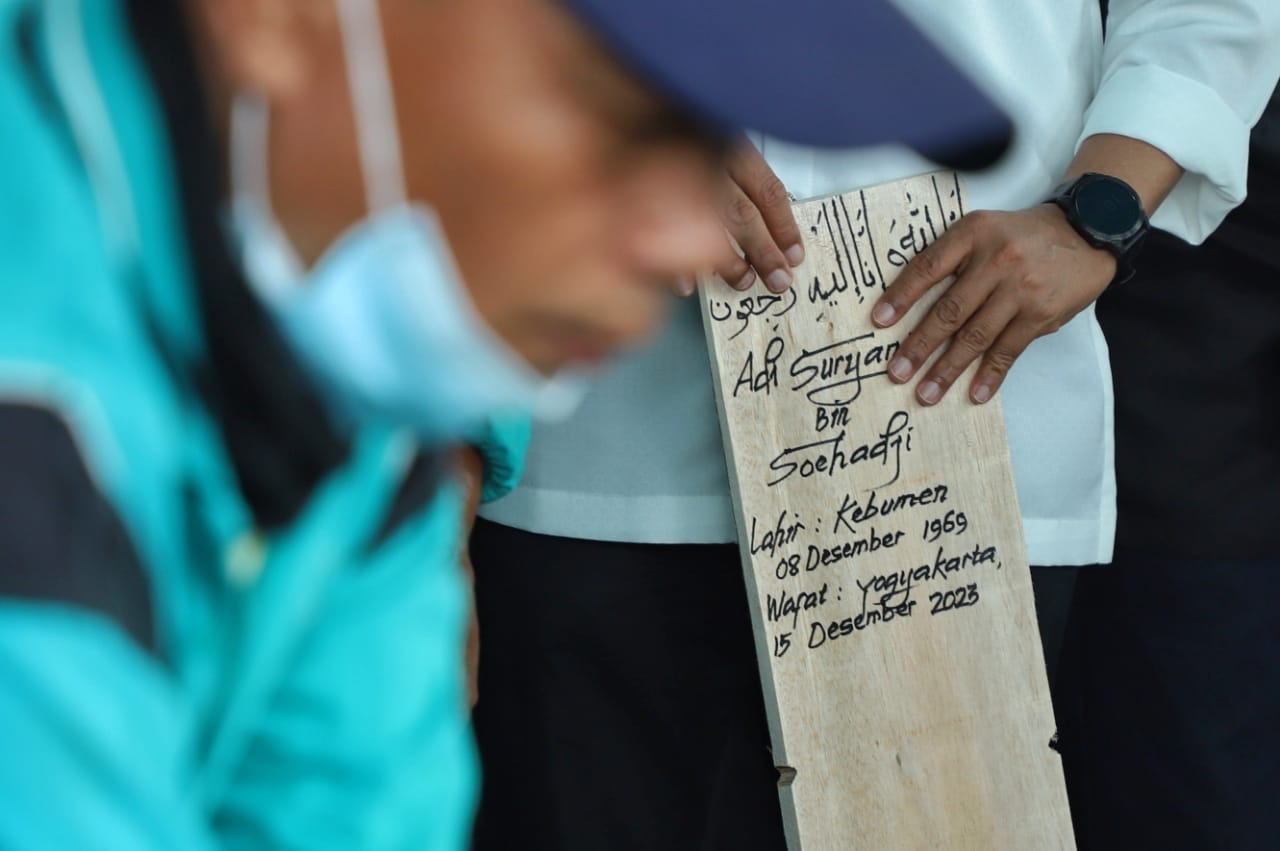 اِنَّالِلّٰهِ وَاِنَّا اِلَيْهِ رٰجِعُوْن
Adi Suryan
Bin
Soehadji
Lahir : Kebumen
08 Desember 1969
Wafat : Yogyakarta,
15 Desember 2023